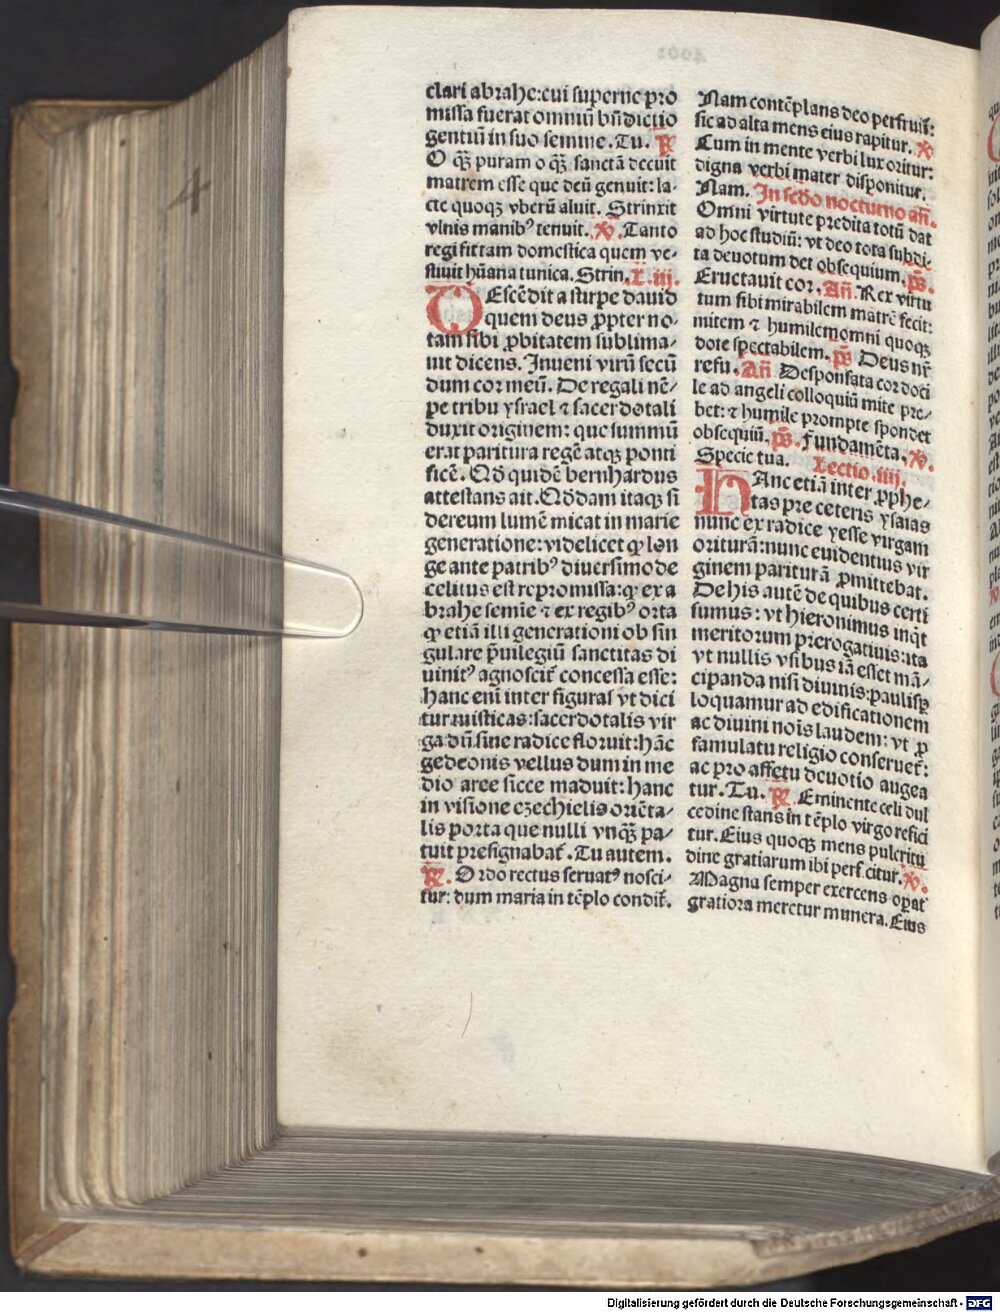 clari abrahe:cui superne pro
missa fuerat omniū bn̄dictio
gentiū in suo semine. Tu. ℟
O qꝫ puram o qꝫ sanctā decuit
matrem esse que deū genuit: la-
cte quoqꝫ vberū aluit. Strinxit
vlnis manibꝰ tenuit. ℣. Tanto
regi fit tam domestica quem ve-
stiuit hūana tunica. Strin. L. iij.
DEscēdit a stirpe dauid
quem deus ꝓpter no-
tam sibi ꝓbitatem sublima-
uit dicens. Inueni virū secū
dum cor meū. De regali nē-
pe tribu ysrael ⁊ sacerdotali
duxit originem: que summū
erat paritura regē atqꝫ ponti
ficē. Qd̄ quidē bernhardus
attestans ait. Qd̄dam itaqꝫ si
dereum lumē micat in marie
generatione: videlicet ꝙ lon
ge ante patribꝰ diuersimode
celitus est repromissa: ꝙ ex a
brahe semīe ⁊ ex regibꝰ orta
ꝙ etiā illi generationi ob sin
gulare p̄uilegiū sanctitas di
uinitꝰ agnoscit̄ concessa esse:
hanc eni inter figuras vt dici
tur misticas: sacerdotalis vir
ga dū sine radice floruit: hāc
gedeonis vellus dum in me
dio aree sicce maduit: hanc
in visione ezechielis oriēta-
lis porta que nulli vnqꝫ pa-
tuit presignabat̄. Tu autem.
℟. Ordo rectus seruatꝰ nosci-
tur: dum maria in tēplo condit̄.
Nam contēplans deo perfruit̄:
sic ad alta mens eius rapitur. ℣
Cum in mente verbi lux oritur:
digna verbi mater disponitur.
Nam. In scd̄o nocturno an̄.
Omni virtute predita totū dat
ad hoc studiū: vt deo tota subdi-
ta deuotum det obsequium. ps̄.
Eructauit cor. An̄. Rex virtu
tum sibi mirabilem matrē fecit:
mitem ⁊ humilem omni quoqꝫ
dote spectabilem. ps̄ Deus nr̄
refu. An̄ Desponsata cor doci
le ad angeli colloquiū mite pre-
bet: ⁊ humile prompte spondet
obsequiū. ps̄. Fundamēta. ℣.
Specie tua. Lectio .iiij.
HAnc etiā inter ꝓphe-
tas pre ceteris ysaias
nunc ex radice yesse virgam
oriturā: nunc euidentius vir
ginem pariturā ꝓmittebat.
De his autē de quibus certi
sumus: vt hieronimus inqt
meritorum prerogatiuis: ita
vt nullis vsibus iā esset mā-
cipanda nisi diuinis: paulisꝑ
loquamur ad edificationem
ac diuini nois laudem: vt ꝑ
famulatu religio conseruet̄:
ac pro affetu deuotio augea
tur. Tu. ℟. Eminente celi dul
cedine stans in tēplo virgo refici
tur. Eius quoqꝫ mens pulcritu
dine gratiarum ibi perficitur. ℣.
Magna semper exercens opat̄
gratiora meretur munera. Eius
4
Digitalisierung gefördert durch die Deutsche Forschungsgemeinschaft - DFG